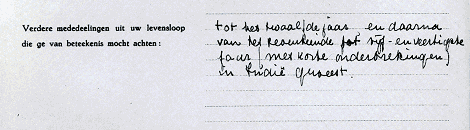 Verdere mededeelingen uit uw levensloop
die ge van beteekenis mocht achten :
tot het twaalfde jaar en daarna
van het tot vijf- en veertigste
jaar (met korte onderbrekingen)
in Indië geweest.